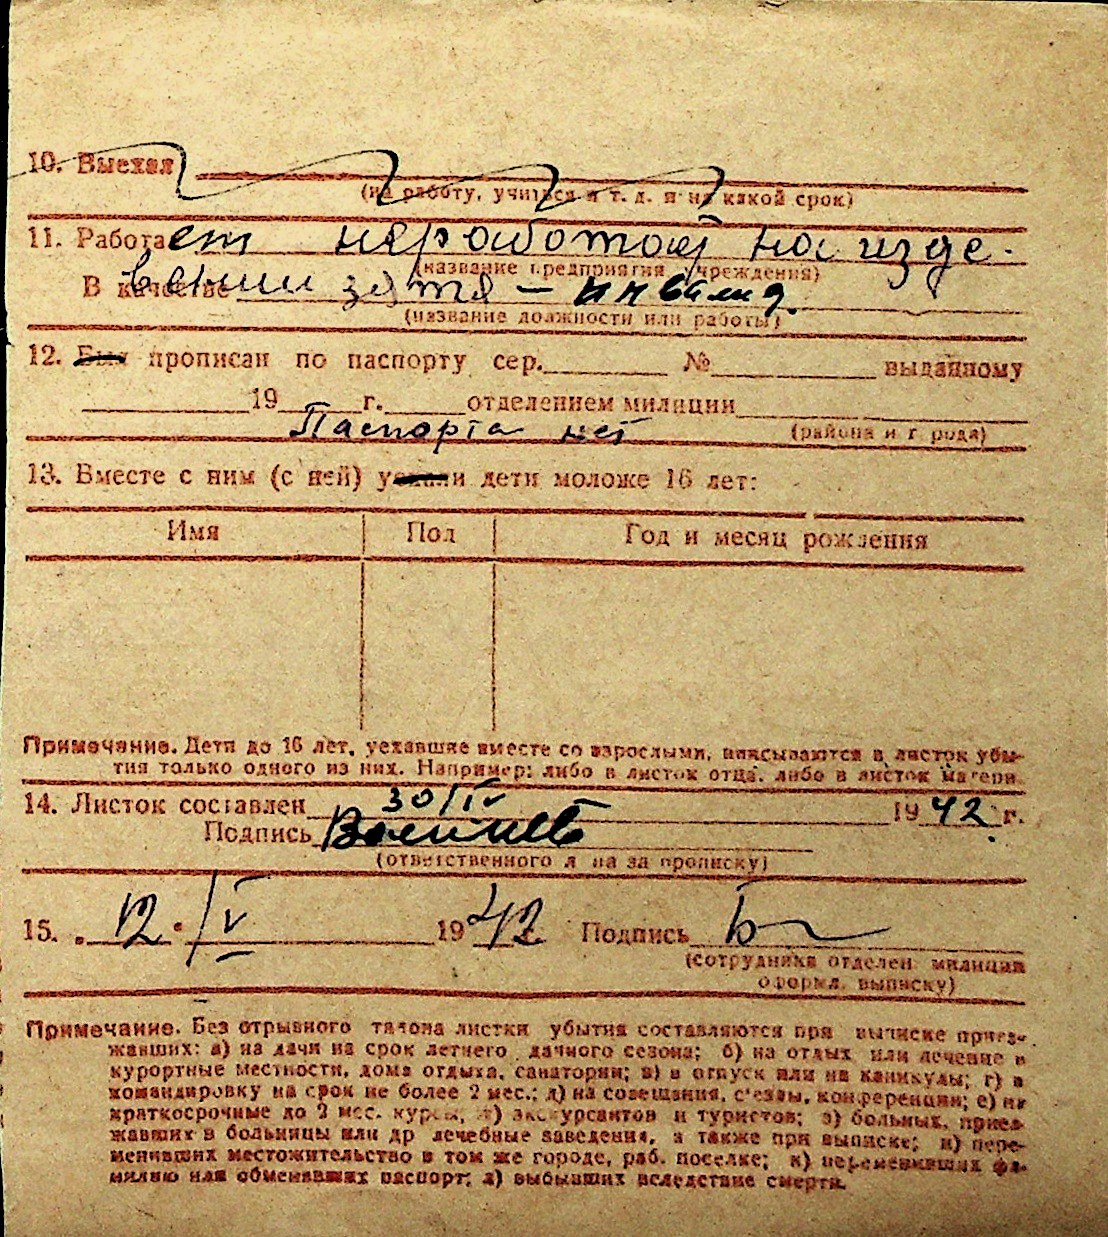 10. Выехал
(на работу, учиться и т. д. и на какой срок)
11. Работает неработой на изде-
(название предприятия, учреждения)
В качестве вении зятя – инвалид.
(название должности или работы)
12. Был прописан по паспорту сер. № выданному
19 г. отделением милиции
Паспорта нет (района и города)
13. Вместе с ним (с ней) уехали дети моложе 16 лет:
Имя Пол Год и месяц рождения
Примечание. Дети до 16 лет, уехавшие вместе со взрослыми, вписываются в листок убы-
тия только одного из них. Например: либо в листок отца, либо в листок матери.
14. Листок составлен 30/IV 1942 г.
Подпись
(ответственного лица за прописку)
15. „12“/V 1942 Подпись
(сотрудника отделен. милиции
оформл. выписку)
Примечание. Без отрывного талона листки убытия составляются при выписке приез-
жавших: а) на дачи на срок летнего дачного сезона; б) на отдых или лечение в
курортные местности, дома отдыха, санатории; в) в отпуск или на каникулы; г) в
командировку на срок не более 2 мес.; д) на совещания, съезды, конференции; е) на
краткосрочные до 2 мес. курсы; ж) экскурсантов и туристов; з) больных, приез-
жавших в больницы или др лечебные заведения, а также при выписке; и) пере-
менивших местожительство в том же городе, раб. поселке; к) переменивших фа-
милию или обменявших паспорт; л) выбывших вследствие смерти.